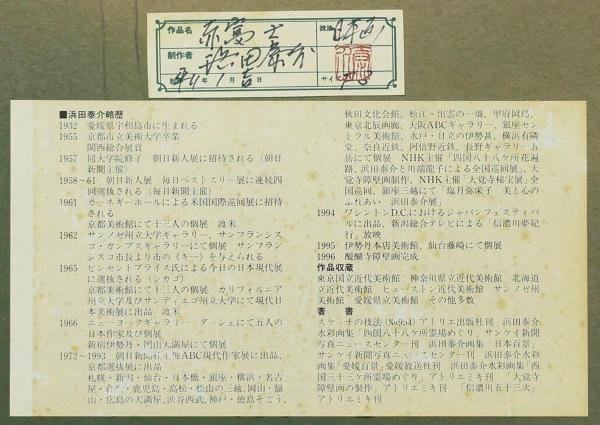 作品名 赤富士
技法 日本画
制作者 浜田泰介
年 月 日
サイズ
■浜田泰介略歴
1932 愛媛県宇和島市に生まれる
1955 京都市立美術大学卒業
関西総合展賞
1957 同大学院修了 朝日新人展に招待される(朝日
新聞主催)
1958〜61 朝日新人展 毎日ベストスリー展に連続四
回選抜される(毎日新聞主催)
1961 カーネギーホールによる米国国際巡回展に招待
される
京都美術館にて十三人の個展 渡米
1962 サンノゼ州立大学ギャラリー、サンフランシス
コ・ガンプスギャラリーにて個展 サンフラン
シスコ市長より市の《キー》を与えられる
1965 ビンセントプライス氏による今日の日本現代展
に選抜される(シカゴ)
京都美術館にて十三人の個展 カリフォルニア
州立大学及びサンディエゴ州立大学にて現代日
本美術展に出品 渡米
1966 ニューヨークギャラリー ダッシュにて五人の
日本作家及び個展
新宿伊勢丹・岡山天満屋にて個展
1972〜1993 朝日新聞社主催ABC現代作家展に出品、
京都選抜展に出品
札幌・新潟・仙台・日本橋・銀座・横浜・名古
屋・ ・鹿児島・高松・松山の三越、岡山・福
山・広島の天満屋、渋谷西武、神戸・徳島そごう、
秋田文化会館、松江・出雲の一畑、甲府岡島、
東京北辰画廊、大阪ABCギャラリー、銀座セン
トラル美術館、水戸・日立の伊勢甚、横浜有隣
堂、奈良近鉄、阿倍野近鉄、長野ギャラリー五
岳にて個展 NHK主催「四国八十八ケ所花遍
路、浜田泰介と川端龍子による全国巡回展」、大
覚寺障壁画制作、NHK主催「大覚寺秘宝展」全
国巡回、銀座三越にて「塩月弥栄子 美と心の
ふれあい 浜田泰介展」
1994 ワシントンD.C.におけるジャパンフェスティバ
ルに出品、新潟総合テレビによる「信濃川夢紀
行」放映
1995 伊勢丹本店美術館、仙台藤崎にて個展
1996 醍醐寺障壁画完成
作品収蔵
東京国立近代美術館 神奈川県立近代美術館 北海道
立近代美術館 ヒューストン近代美術館 サンノゼ州
美術館 愛媛県立美術館 その他多数
著 書
スケッチの技法(№954)アトリエ出版社刊 浜田泰介
水彩画集「四国八十八ケ所霊場めぐり」サンケイ新聞
写真ニュースセンター刊 浜田泰介画集「日本百景」
サンケイ新聞写真ニュースセンター刊 浜田泰介水彩
画集「愛媛百景」愛媛放送社刊 浜田泰介水彩画集「西
国三十三ケ所霊場めぐり」アトリエミキ刊 「大覚寺
障壁画の製作」アトリエミキ刊 「信濃川五十三次」
アトリエミキ刊